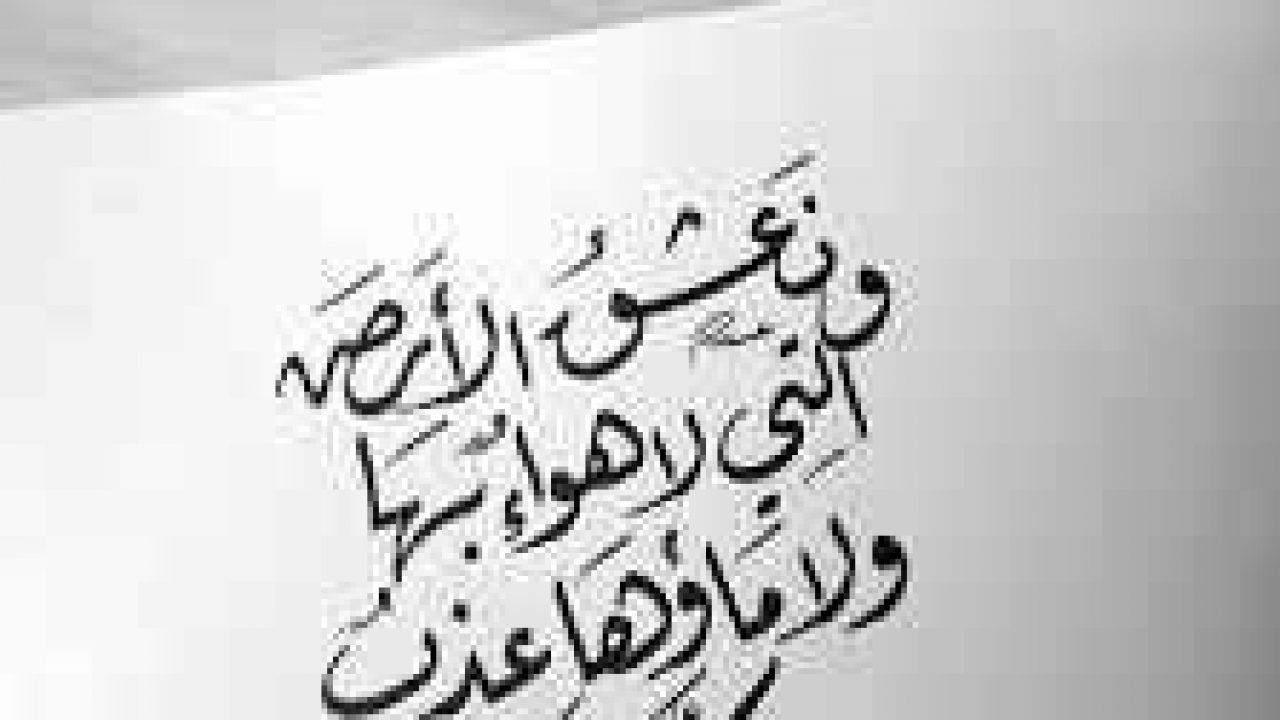 ونَعشقُ الأَرضَ
التي لا هواءٌ بهَا
ولا مَاؤهَا عذبٌ